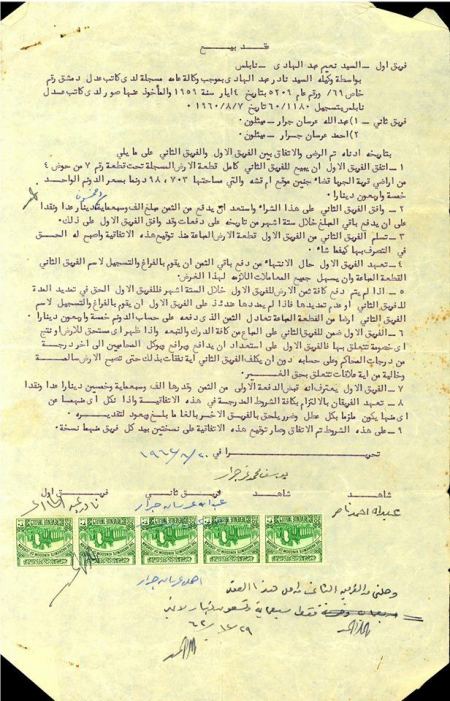 عقد بيع
فريق اول – السيد نعيم عبد الهادي – نابلس
بواسطة وكيله السيد نادر عبد الهادي بموجب وكالة عامه مسجلة لدى كاتب عدل دمشق رقم
خاص /٦٦ ورقم عام ٥٢٠٦ بتاريخ ٤ ايار سنة ١٩٥٩ والمأخوذ عنها صور لدى كاتب عدل
نابلس بتسجيل ٦٠/١١٨٠ تاريخ ١٩٦٠/٨/٧
فريق ثاني – ١) عبدالله عرسان جرار – ميثلون ٠
٢) احمد عرسان جرار – ميثلون ٠
بتاريخه ادناه تم الرضى والاتفاق بين الفريق الاول والفريق الثاني على ما يلي
١ – اتفق الفريق الاول ان يبيع للفريق الثاني كامل قطعة الارض المسجلة تحت قطعة رقم ٧ من حوض ٤
من اراضي تربة الجربا قضاء جنين والتي مساحتها ٩٨،٧٠٣ دونما بسعر الدونم الواحد
خمسة واربعون دينارا ٠
٢ – وافق الفريق الثاني على هذا الشراء واستعد ان يدفع من الثمن مبلغ الف وسبعماية دينارا عدا ونقدا
على ان يدفع باقي المبلغ خلال ستة اشهر من تاريخه على دفعات وقد وافق الفريق الاول على ذلك ٠
٣ – تسلم الفريق الثاني من الفريق الاول قطعة الارض المباعة منذ توقيع هذه الاتفاقية واصبح له الحق
في التصرف بها كيفما شاء ٠
٤ – تعهد الفريق الاول حال الانتهاء من دفع باقي الثمن ان يقوم بالفراغ والتسجيل لاسم الفريق الثاني
القطعة المباعة وان يسهل جميع المعاملات اللازمه لهذا الغرض ٠
٥ – اذا لم يتم دفع كافة ثمن الارض للفريق الاول خلال الستة اشهر فللفريق الاول الحق في تمديد المدة
للفريق الثاني او عدم تمديدها فاذا لم يمددها عندئذ على الفريق الاول ان يقوم بالفراغ والتسجيل لاسم
الفريق الثاني ارضا من القطعة المباعة تعادل الثمن الذى دفعه على حساب الدونم خمسة واربعون دينارا ٠
٦ – الفريق الاول ضمن للفريق الثاني على المباع من كافة الدرك والتبعه واذا ظهر اى مستحق للارض او نتج
اى خصومة تتعلق بها فالفريق الاول على استعداد ان يدافع ويرافع ويوكل المحامين الى اخر درجة
من درجات المحاكم وعلى حسابه دون ان يكلف الفريق الثاني اية نفقات بذلك حتى تصبح الارض سالمة
وخالية من اية علاقات تتعلق بحق الغير ٠
٧ – الفريق الاول يعترف انه قبض الدفعة الاولى من الثمن وقدرها الف وسبعماية وخمسين دينارا عدا ونقدا
٨ – تعهد الفريقان بالالتزام بكافة الشروط المدرجة في هذه الاتفاقية واذا نكل اى منهما عن
اى منها يكون ملزما بكل عطل وضرر يلحق بالفريق الاخر بالغا ما بلغ ويعود لتقديره ٠
٩ – على هذه الشروط تم الاتفاق وصار توقيع هذه الاتفاقية على نسختين بيد كل فريق منهما نسخة ٠
تحريرا في ٢٠/
يوسف محمد جرار
شاهد شاهد فريق ثاني فريق اول
عبدالله احمد ناصر عبدالله عرسان جرار نادر عبد الهادي
احمد عرسان جرار
وصلني من الفريق الثاني من اصل هذا العقد
فقط سبعماية وتسعون دينار لا غير